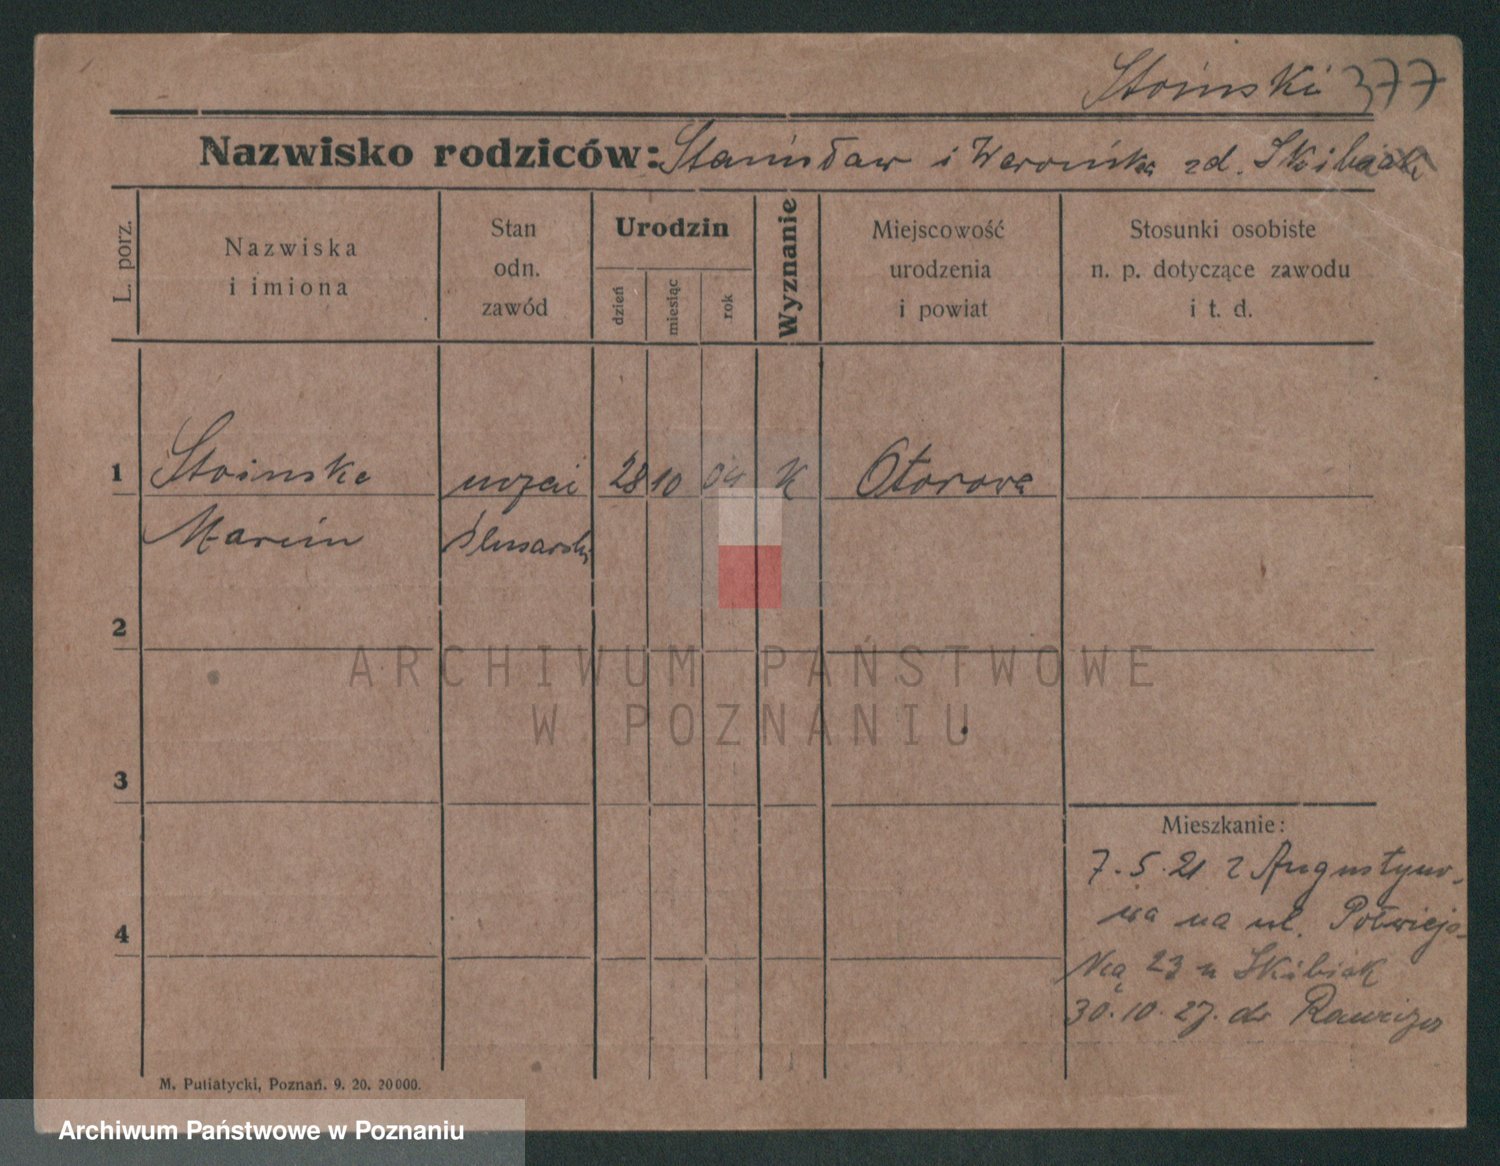 Stoinski 377
Nazwisko rodziców: Stanisław i Weronika zd. Skibiak
L. porz.
Nazwiska
i imiona
Stan
odn.
zawód
Urodzin
dzień
miesiąc
rok
Wyznanie
Miejscowość
urodzenia
i powiat
Stosunki osobiste
n. p. dotyczące zawodu
i t. d.
1 Stoinski 28 10 04 K Otorowa
Marcin ślusarski
2
ARCHIWUM PAŃSTWOWE
W POZNANIU
3
Mieszkanie:
7.5.21 z Augustyno-
wa na ul. Półwiejs-
ką 23 u Skibiak
4
30.10.27. do Rawicza
M. Putiatycki, Poznań. 9. 20. 20000.
Archiwum Państwowe w Poznaniu